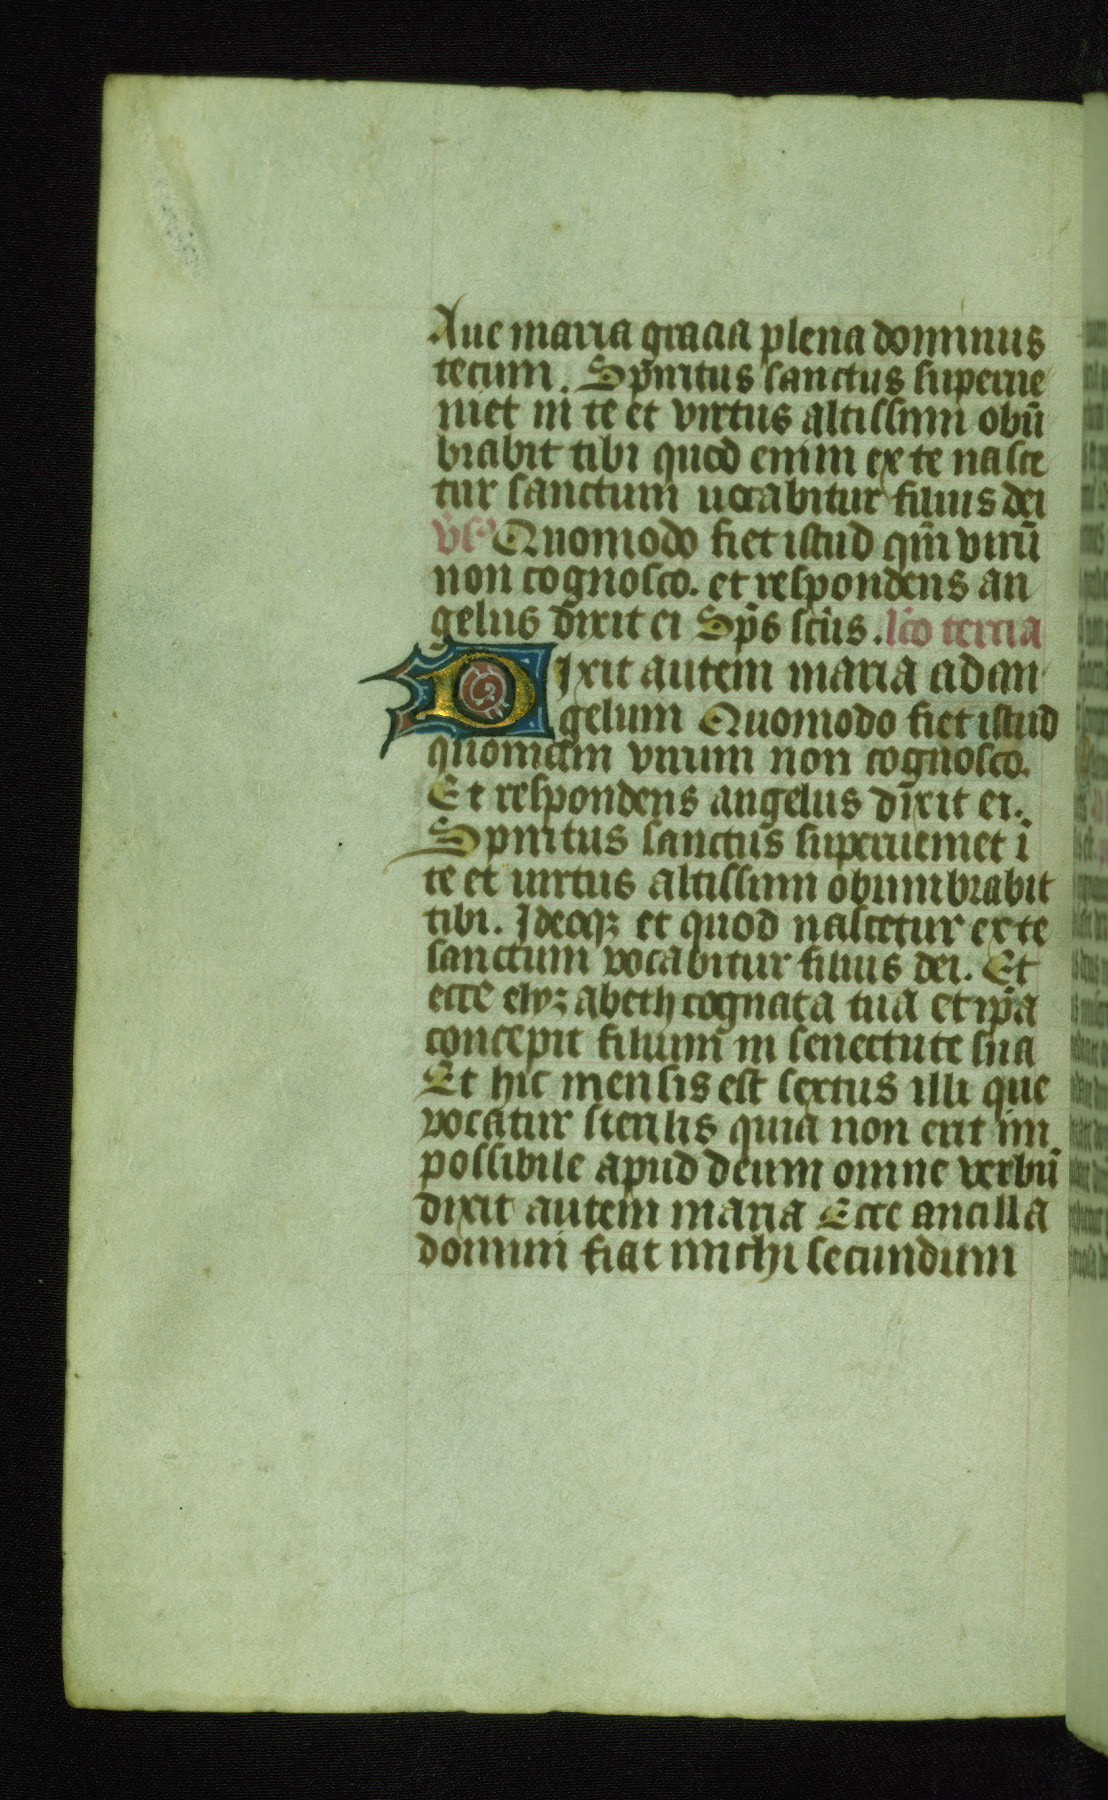 Aue maria gracia plena dominus
tecum. Sp̄iritus sanctus superue
niet in te et virtus altissimi obū
brabit tibi quod enim ex te nasce
tur sanctum uocabitur filius dei
v̄s̄ Quomodo fiet istud qm̄ virū
non cognosco. et respondens an
gelus dixit ei Sp̄s sc̄us. lc̄o tercia
Dixit autem maria ad an
gelum Quomodo fiet istud
quoniam virum non cognosco.
Et respondens angelus dixit ei.
Spiritus sanctus superueniet ī
te et uirtus altissimi obumbrabit
tibi. Ideoqꝫ et quod nascetur ex te
sanctum vocabitur filius dei. Et
ecce elyzabeth cognata tua et ip̄a
concepit filium in senectute sua
Et hic mensis est sextus illi que
vocatur sterilis quia non erit im
possibile apud deum omne verbū
dixit autem maria Ecce ancilla
domini fiat michi secundum